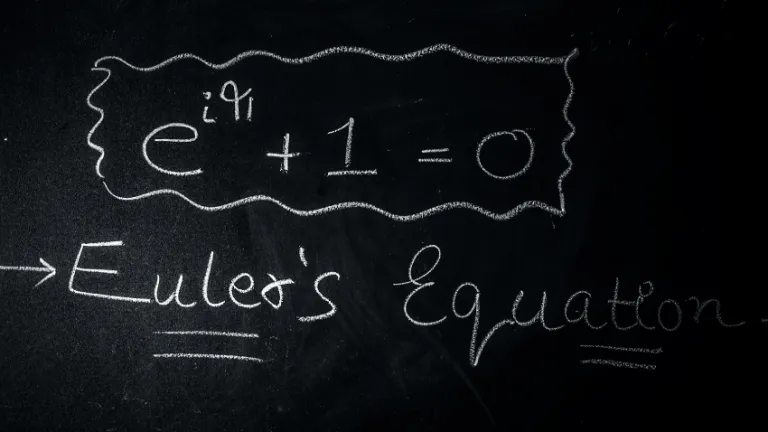 e^{iπ} + 1 = 0
→ Euler's Equation